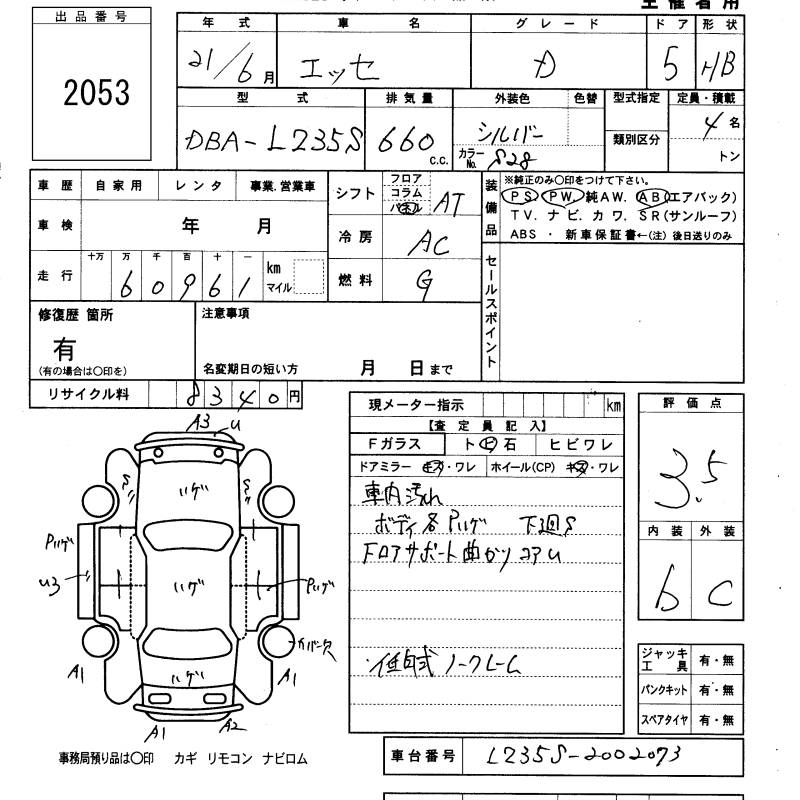 主催者用
出品番号
2053
年式 車名 グレード ドア 形状
21/6月 エッセ D 5 HB
型式 排気量 外装色 色替 型式指定 定員・積載
DBA-L235S 660 c.c. シルバー カラーNo. S28 類別区分 4名
トン
車歴 自家用 レンタ 事業.営業車
車検 年 月
走行 十万 万 千 百 十 一
60961 km マイル
シフト フロア コラム パネル AT
冷房 AC
燃料 G
装備品 ※純正のみ〇印をつけて下さい。
PS. PW. 純AW. AB(エアバック)
TV. ナビ. カワ. SR(サンルーフ)
ABS ・ 新車保証書←(注) 後日送りのみ
セールスポイント
修復歴 箇所
有
(有の場合は〇印を)
注意事項
名変期日の短い方 月 日まで
リサイクル料 8340円
現メーター指示 km
【査定員記入】
Fガラス ト ビ 石 ヒビワレ
ドアミラー キズ・ワレ ホイール(CP) キズ・ワレ
車内汚れ
ボディ各Pハゲ 下廻S
Fロアサポート曲がりコアU
低年式 ノークレーム
評価点
3.5
内装 外装
b C
ジャッキ工具 有・無
パンクキット 有・無
スペアタイヤ 有・無
A3 U
S S
ハゲ
Pハゲ
U3
ハゲ
Pハゲ
カバー欠
A1 A1
ハゲ
A1 A2
事務局預り品は〇印 カギ リモコン ナビロム
車台番号 L235S-2002073